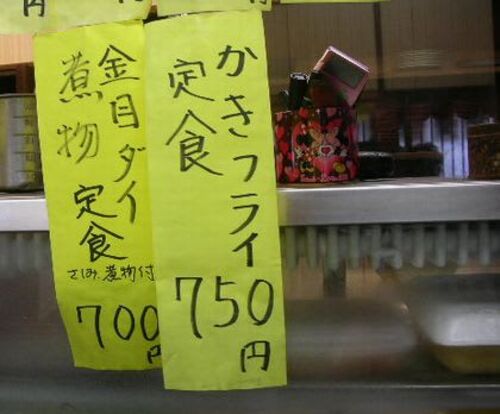 かきフライ
定食
750
円
金目ダイ
煮物定食
さしみ、煮物付
700
円
円